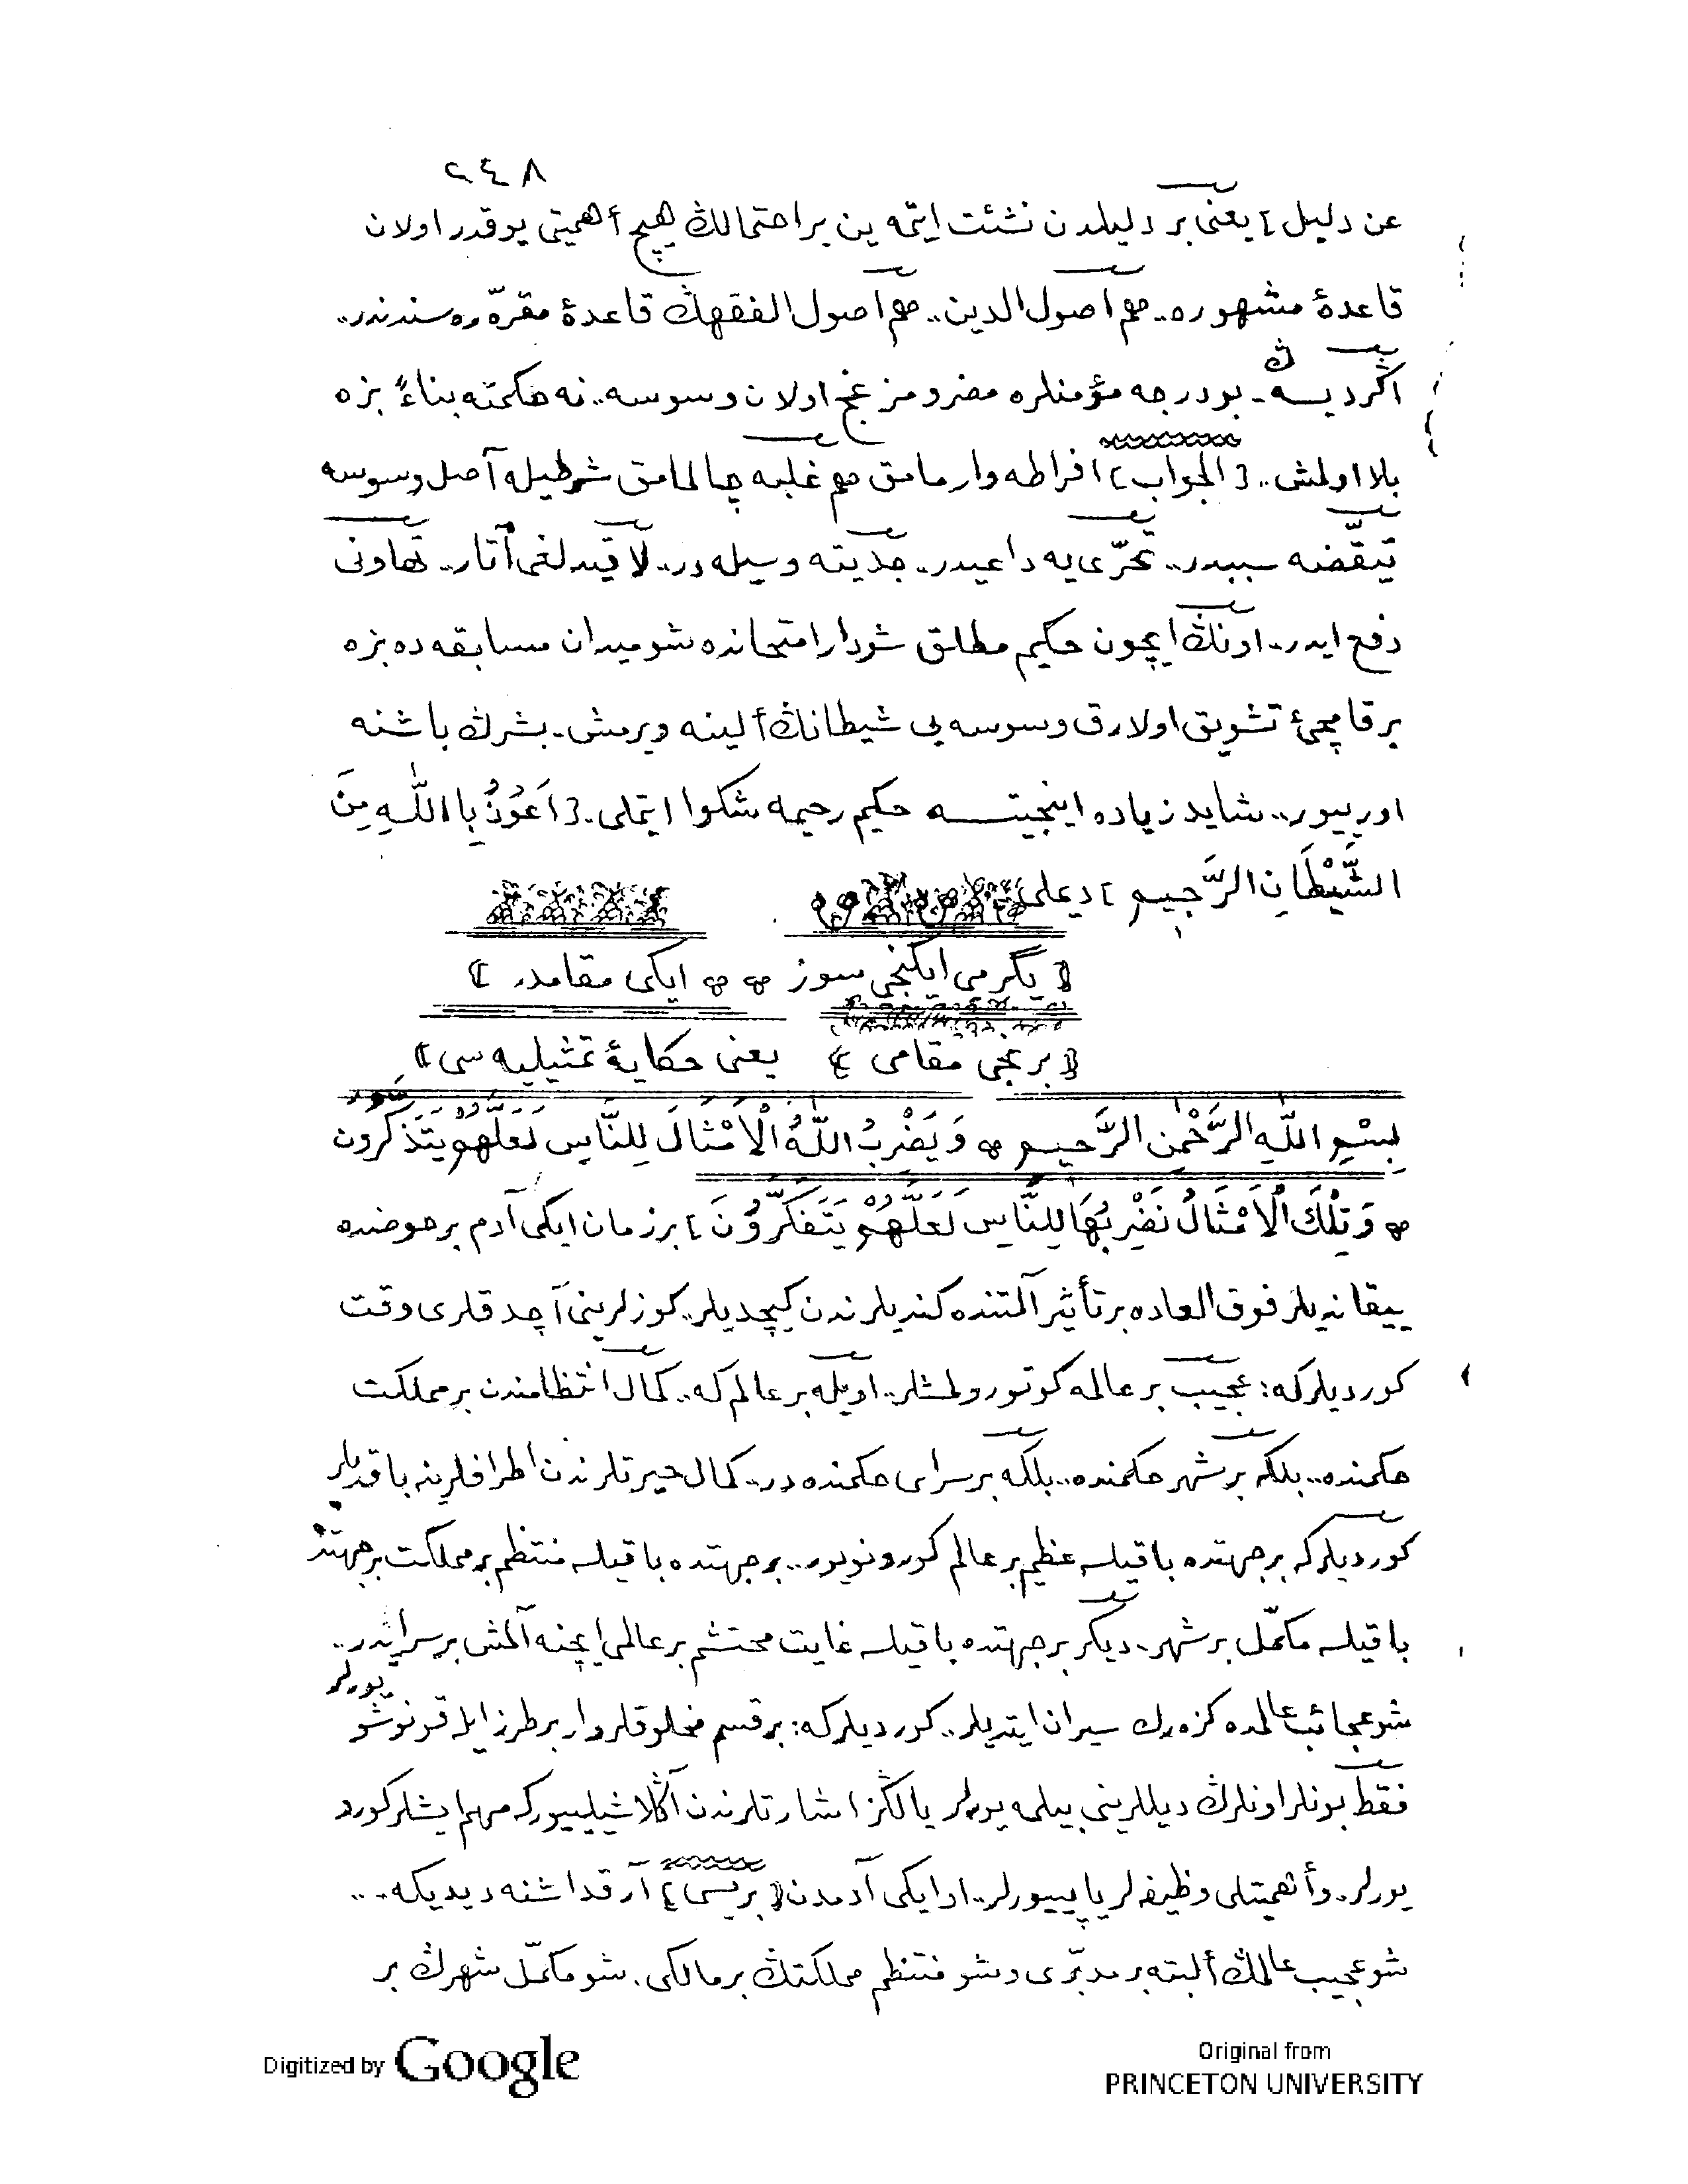 ٢٤٨
عن دليل] يعنى بر دليلدن نشئت ايتمه ين بر احتمالڭ هيچ أهميتى يوقدر اولان
قاعدهٔ مشهوره.. هم اصول الدين.. هم اصول الفقهڭ قاعدهٔ مقرّره سندندر..
اگر ديسه ڭ. بو درجه مؤمنلره مضر و مزعج اولان وسوسه.. نه حكمته بناءً بزه
بلا اولمش.. [الجواب] افراطه وارمامق هم غلبه چالمامق شرطيله آصل وسوسه
تيقّضه سببدر.. تحرّى يه داعيدر.. جدّيته وسيله در.. لاقيدلغى آتار.. تهاونى
دفع ايدر.. اونڭ ايچون حكيم مطلق شو دار امتحانده شو ميدان مسابقه ده بزه
بر قامچىٔ تشويق اولارق وسوسه يى شيطانڭ ألينه ويرمش. بشرڭ باشنه
اورييور.. شايد زياده اينجيتسه حكيم رحيمه شكوا ايتملى.. [اَعُوذُ بِا اللّٰهِ مِنَ
الشَّيْطَانِ الرَّجيم] ديملى
[يگرمى ايكنجى سوز ايكى مقامدر]
[برنجى مقامى] يعنى حكايهٔ تمثيليه سى]
بِسْمِ اللّٰهِ الرَّحْمٰنِ الرَّحيم وَيَضْرِبُ اللّٰهُ الْاَمْثَالَ لِلنَّاسِ لَعَلَّهُمْ يَتَذَكَّرُون
وَ تِلْكَ الْاَمْثَالُ نَضْرِبُهَا لِلنَّاسِ لَعَلَّهُمْ يَتَفَكَّرُونَ] بر زمان ايكى آدم بر حوضده
ييقانديلر فوق العاده بر تأثير آلتنده كنديلرندن كيچديلر.. كوزلرينى آچدقلرى وقت
كورديلر كه: عجيب بر عالمه كوتورولمشلر.. اويله بر عالم كه.. كمال انتظامندن بر مملكت
حكمنده.. بلكه بر شهر حكمنده.. بلكه بر سراى حكمنده در.. كمال حيرتلرندن اطرافلرينه باقديلر
كورديلر كه بر جهتده باقيلسه عظيم بر عالم كورونويور.. بر جهتده باقيلسه منتظم بر مملكت بر جهتده
باقيلسه مكمّل بر شهر. ديگر بر جهتده باقيلسه غايت محتشم بر عالمى ايچنه آلمش بر سرايدر..
شو عجائب عالمده كزه رك سيران ايتديلر.. كورديلر كه: بر قسم مخلوقلر وار بر طرز ايله قونوشو يورلر
فقط بونلر اونلرڭ ديللرينى بيلمه يورلر يالڭز اشارتلرندن آڭلاشيلييور كه مهم ايشلر كورو
يورلر.. و أهميتلى وظيفه لر ياپييورلر.. او ايكى آدمدن [بريسى] آرقداشنه ديديكه...
شو عجيب عالمڭ ألبته بر مدبّرى و شو منتظم مملكتڭ بر مالكى. شو مكمّل شهرڭ بر
Digitized by Google
Original from
PRINCETON UNIVERSITY